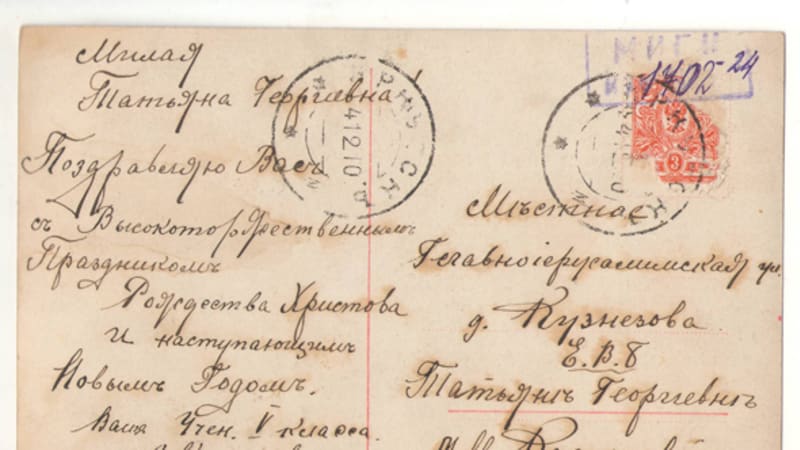 Милая
Татьяна Георгіевна!
Поздравляю Васъ
съ Высокоторжественнымъ
Праздникомъ
Рождества Христова
и наступающимъ
Новымъ Годомъ.
Ваша Учен. V класса.
1702 24
3
41210
Мѣстное
Главноіерусалимская ул.
д. Кузнезова
Е. В. Б
Татьянѣ Георгіевнѣ